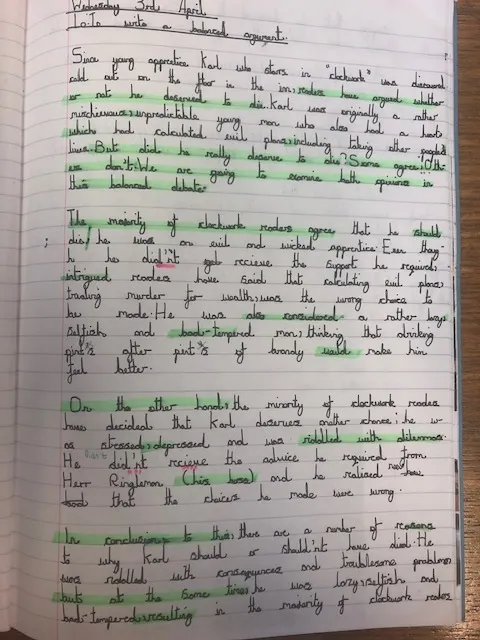 Wednesday 3rd April
L.O.T.n write a balanced argument.
Since young apprentice Karl who stars in "clockwork" was discovered
cold out on the floor in the inn, readers have argued whether
or not he deserved to die. Karl was originally a rather
mischievous, unpredictable young man who also had a heart
which had calculated evil plans, including taking other people's
lives. But did he really deserve to die? Some agree! Oth-
ers don't. We are going to examine both opinions in
this balanced debate.
The majority of clockwork readers agree that he should
die! he was an evil and wicked apprentice. Even thoug-
h he did'nt get recieve the support he required,
intrigued readers have said that calculating evil plans,
trading murder for wealth, was the wrong choice to
be made. He was also considered a rather lazy
selfish and bad-tempered man, thinking that drinking
pint's after pint's of brandy would make him
feel better.
On the other hand, the minority of clockwork readers
have decided that Karl deserves another chance; he w-
as stressed, depressed and was riddled with dilemmas.
He did'nt recieve the advice he required from
Herr Ringlemon (his boss) and he realised
that the choices he made were wrong.
In conclusion to this, there are a number of reasons
to why Karl should or should'nt have died. He
was riddled with consequences and troublesome problems
but at the same time, he was lazy, selfish and
bad-tempered, resulting in the majority of clockwork readers